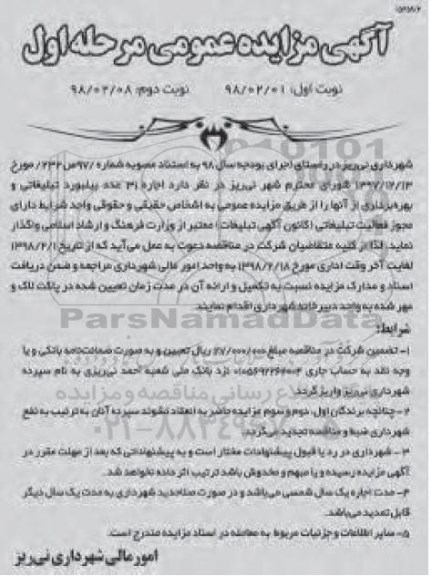 آگهی مزایده عمومی مرحله اول
نوبت اول: ۹۸/۰۲/۰۱ نوبت دوم: ۹۸/۰۲/۰۸
شهرداری نی‌ریز در راستای اجرای بودجه سال ۹۸ به استناد مصوبه شماره مورخ
۱۳۹۷/۱۲/۱۳ شورای محترم شهر نی‌ریز در نظر دارد اجاره ۳۱ عدد بیلبورد تبلیغاتی و
بهره‌برداری از آنها را از طریق مزایده عمومی به اشخاص حقیقی و حقوقی واجد شرایط دارای
مجوز فعالیت تبلیغاتی (کانون آگهی تبلیغات) معتبر از وزارت فرهنگ و ارشاد اسلامی واگذار
نماید. لذا از کلیه متقاضیان شرکت در مناقصه دعوت به عمل می‌آید که از تاریخ ۱۳۹۸/۲/۱
لغایت آخر وقت اداری مورخ ۱۳۹۸/۲/۱۸ به واحد امور مالی شهرداری مراجعه و ضمن دریافت
اسناد و مدارک مزایده نسبت به تکمیل و ارائه آن در مدت زمان تعیین شده در پاکت لاک و
مهر شده به واحد دبیرخانه شهرداری اقدام نمایند.
ParsNamadData
شرایط:
۱- تضمین شرکت در مناقصه مبلغ ریال تعیین و به صورت ضمانت‌نامه بانکی و یا
وجه نقد به حساب جاری نزد بانک ملی شعبه احمد نی‌ریزی به نام سپرده
شهرداری نی‌ریز واریز گردد.
۲- چنانچه برندگان اول، دوم و سوم مزایده حاضر به انعقاد نشوند سپرده آنان به ترتیب به نفع
شهرداری ضبط و مناقصه تجدید می‌گردد.
۳- شهرداری در رد یا قبول پیشنهادات مختار است و به پیشنهاداتی که بعد از مهلت مقرر در
آگهی مزایده رسیده و یا مبهم و مخدوش باشد ترتیب اثر داده نخواهد شد.
۴- مدت اجاره یک سال شمسی می‌باشد و در صورت صلاحدید شهرداری به مدت یک سال دیگر
قابل تمدید می‌باشد.
۵- سایر اطلاعات و جزئیات مربوط به معامله در اسناد مزایده مندرج است.
امور مالی شهرداری نی‌ریز